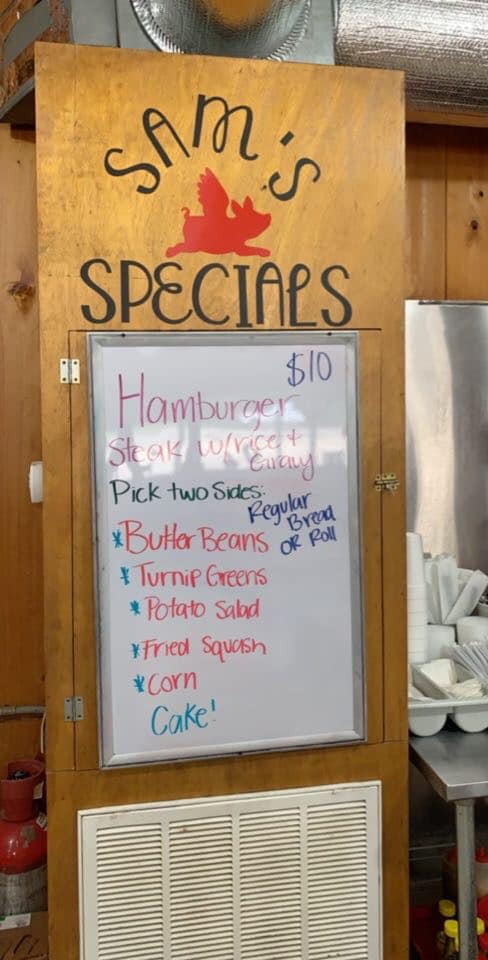 SAM'S
SPECIALS
$10
Hamburger
Steak w/rice +
Gravy
Pick two Sides:
Regular
Bread
OR Roll
*Butter Beans
*Turnip Greens
*Potato Salad
*Fried Squash
*Corn
Cake!